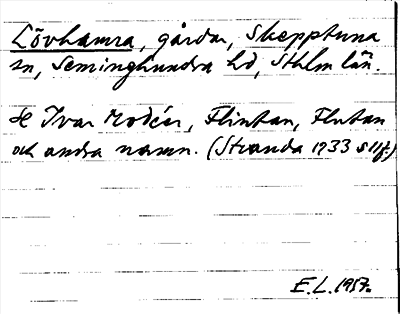 Lövhamra, gårdar, Skepptuna
sn, Seminghundra hd, Sthlm län.
se Ivar Modéer, Flintan, Flutan
och andra namn. (Stranda 1933 s 11f.)
E.L. 1957.